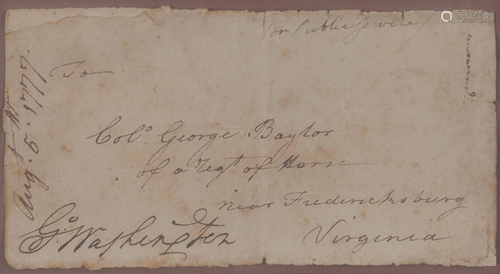 for Public Service
To
Colo. George Baylor
of a Regt. of Horse
near Fredericksburg
Virginia
Go Washington
Aug. 5. 1777